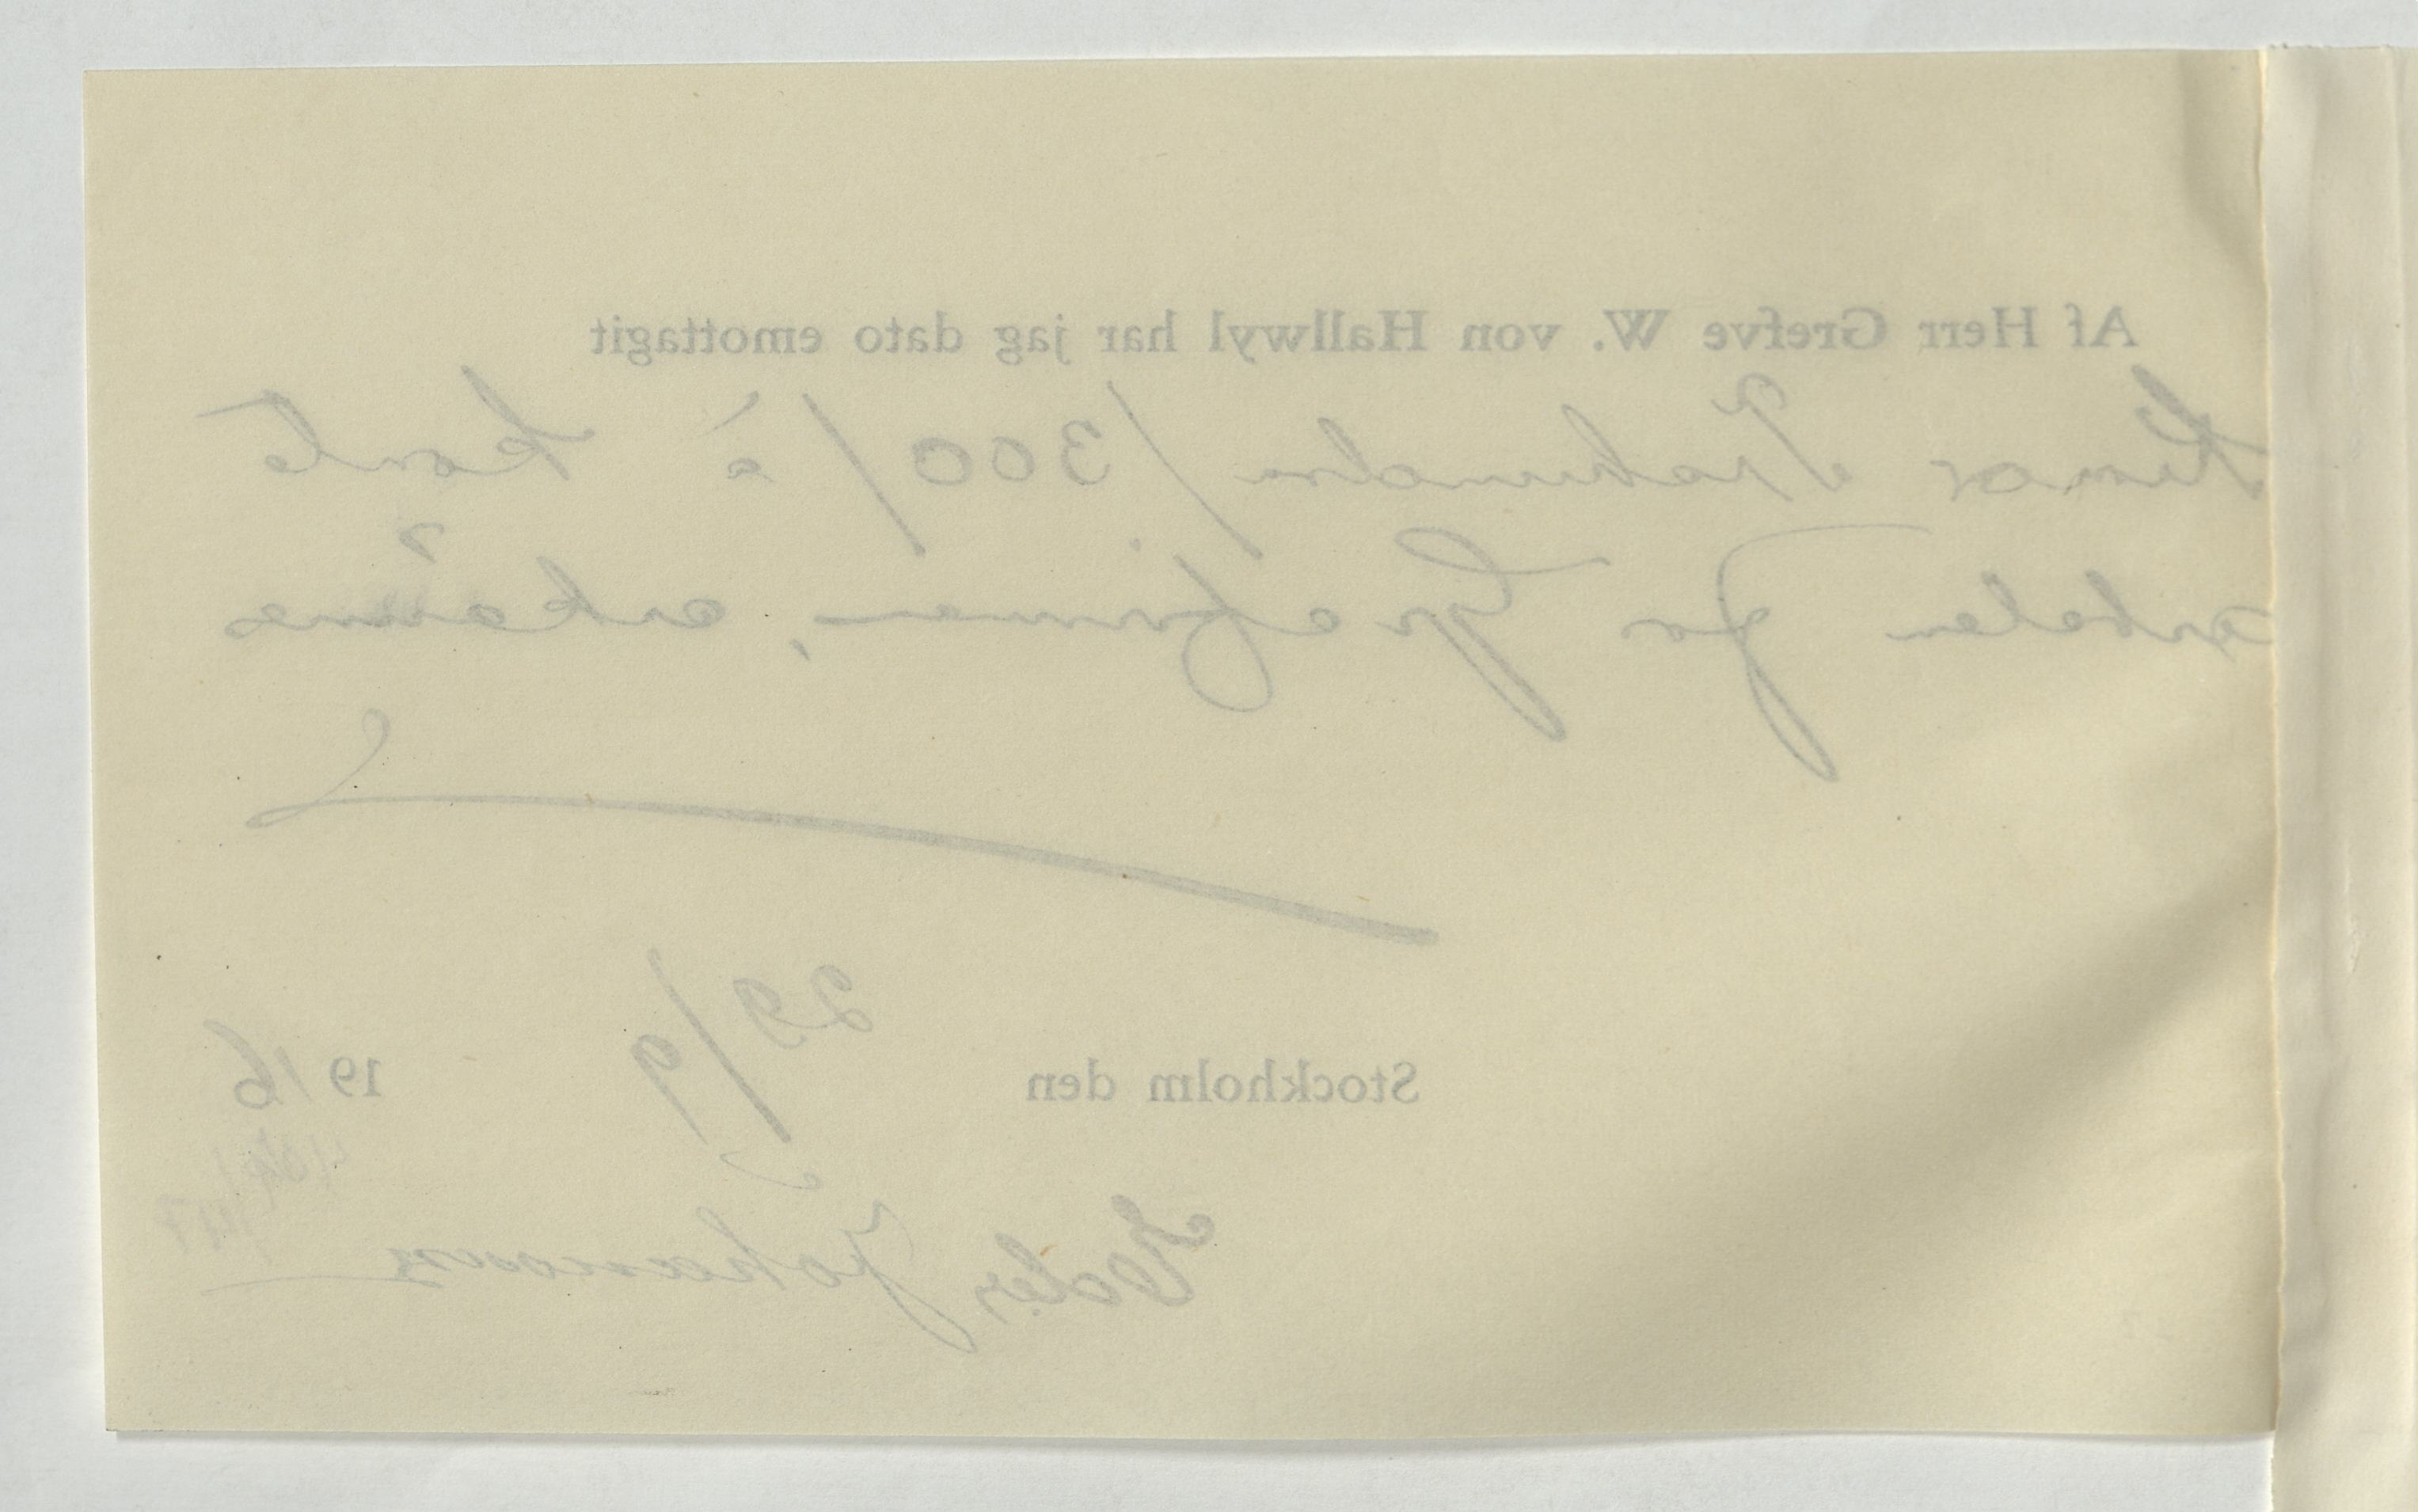 Af Herr Grefve W. von Hallwyl har jag dato emottagit
Kronor Trehundra /300/ à konto
arbeten för Grefvinnan, erkännes
29/9
Stockholm den 1916
Johansson